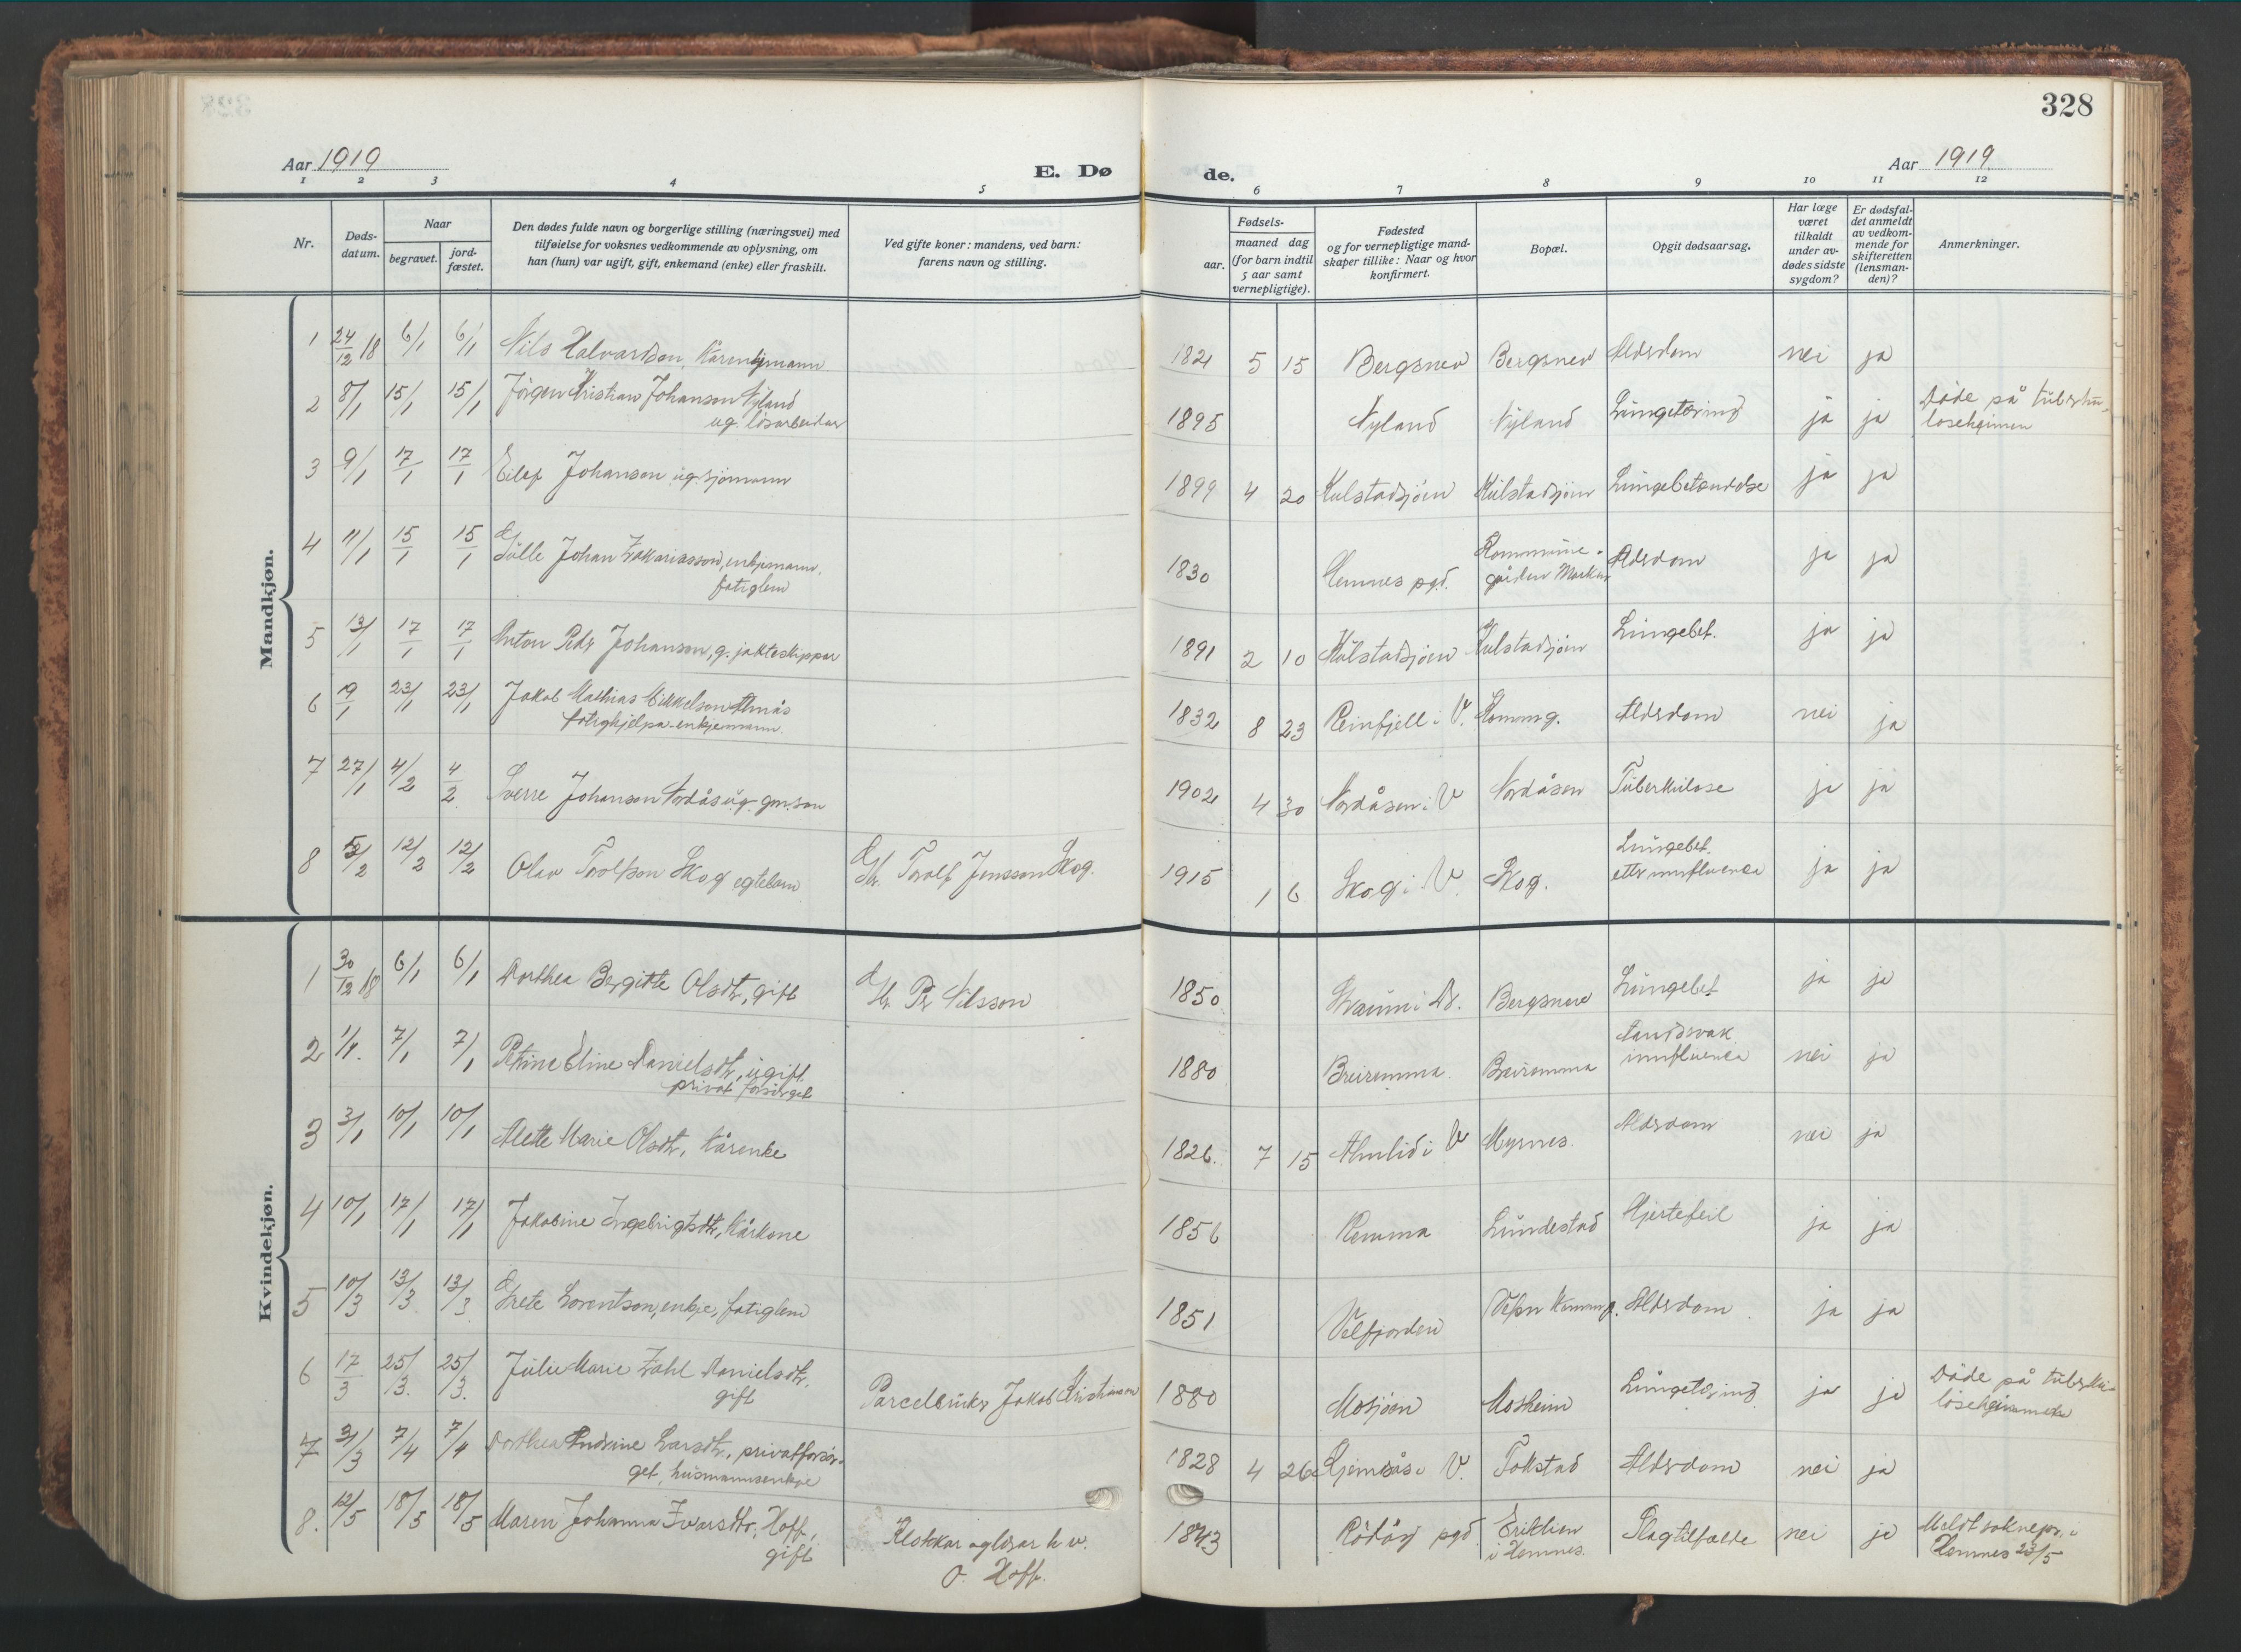 328
Aar 1919
E. Dø
de.
Aar 1919
1 2 3 4 5 6 7 8 9 10 11 12
Nr.
Døds-
datum.
Naar
begravet.
jord-
fæstet.
Den dødes fulde navn og borgerlige stilling (næringsvei) med
tilføielse for voksnes vedkommende av oplysning, om
han (hun) var ugift, gift, enkemand (enke) eller fraskilt.
Ved gifte koner: mandens, ved barn:
farens navn og stilling.
Fødsels-
aar.
maaned dag
(for barn indtil
5 aar samt
vernepligtige).
Fødested
og for vernepligtige mand-
skaper tillike: Naar og hvor
konfirmert.
Bopæl.
Opgit dødsaarsag.
Har læge
været
tilkaldt
under av-
dødes sidste
sygdom?
Er dødsfal-
det anmeldt
av vedkom-
mende for
skifteretten
(lensman-
den)?
Anmerkninger.
Mandkjøn.
1 24/12 18 6/1 6/1 Nils Halvardson, 1821 5 15 Bergsnev Bergsnev Aldrdom nei ja
2 8/1 15/1 15/1 Jörgen Kristian Johanson Nyland
ug. lösarbeidar 1895 Nyland Nyland Lungetæring ja ja Döde på tuberku-
loseheimen
3 9/1 17/1 17/1 Eilef Johanson ug. sjömann 1899 4 20 Kulstadsjöen Kulstadsjöen Lungebetendelse ja ja
4 11/1 15/1 15/1 Johan Zakariasson, enkjemann,
fatiglem 1830 Hemnes pgd. Kommune-
gården Marken Aldrdom ja ja
5 13/1 17/1 17/1 Anton Pedr Johanson, g. jakteskippar 1891 2 10 Kulstadsjöen Kulstadsjöen Lungebet. ja ja
6 19/1 23/1 23/1 Jakob Mathias Mikkelson Almås
fatighjelpa enkjemann 1832 8 23 Reinfjell i V. Kommg. Aldrdom nei ja
7 27/1 4/2 4/2 Sverre Johanson Nordås ug. gm.son 1902 4 30 Nordåsen i V Nordåsen Tuberkulose ja ja
8 5/2 12/2 12/2 Olav Torolfson Skog egteborn Gbr. Torolf Jensson Skog. 1915 1 6 Skog i V. Skog. Lungebet.
ettr innfluensa ja ja
Kvindekjøn.
1 30/12 18 6/1 6/1 Dorthea Bergitte Olsdtr, gift Gbr. Pr Nilsson 1850 Bergsnev Lungebet ja ja
2 1/1. 7/1 7/1 Petrine Eline Danielsdtr, ugift,
privat forsörget 1880 Breiremma Breiremma Aandsvak
innfluensa nei ja
3 3/1 10/1 10/1 Alette Marie Olsdtr, kårenke 1826. 7 15 Almlid i V Mynes. Aldrdom nei ja
4 10/1 17/1 17/1 Jakobine Ingebrigtsdtr, kårkone 1856 Remma Lundestad Hjertefeil ja ja
5 10/3 13/3 13/3 Grete Lorentson, enkje, fatiglem 1851 Velfjorden Vefsn Kommg. Aldrdom ja ja
6 17/3 25/3. 25/3. Julie Marie Zahl Danielsdtr.
gift Parcelbruker Jakob Kristianson 1880 Mosjöen Mosheim Lungetæring ja ja Döde på tuberku-
loseheimen
7 31/3 7/4 7/4 Dorthea Andrine Larsdtr, privatforsör-
get, husmannsenkje 1828 4 26 V. Tokstad Aldrdom nei ja
8. 12/5 18/5 18/5 Maren Johanna Ivarsdtr, Hoff,
gift Klokkar og lærar h. v.
O. Hoff. 1843 Rödöy pgd. Eriklien
i Hemnes. Slagtilfælde nei ja Meldt soknepr. i
Hemnes 23/5